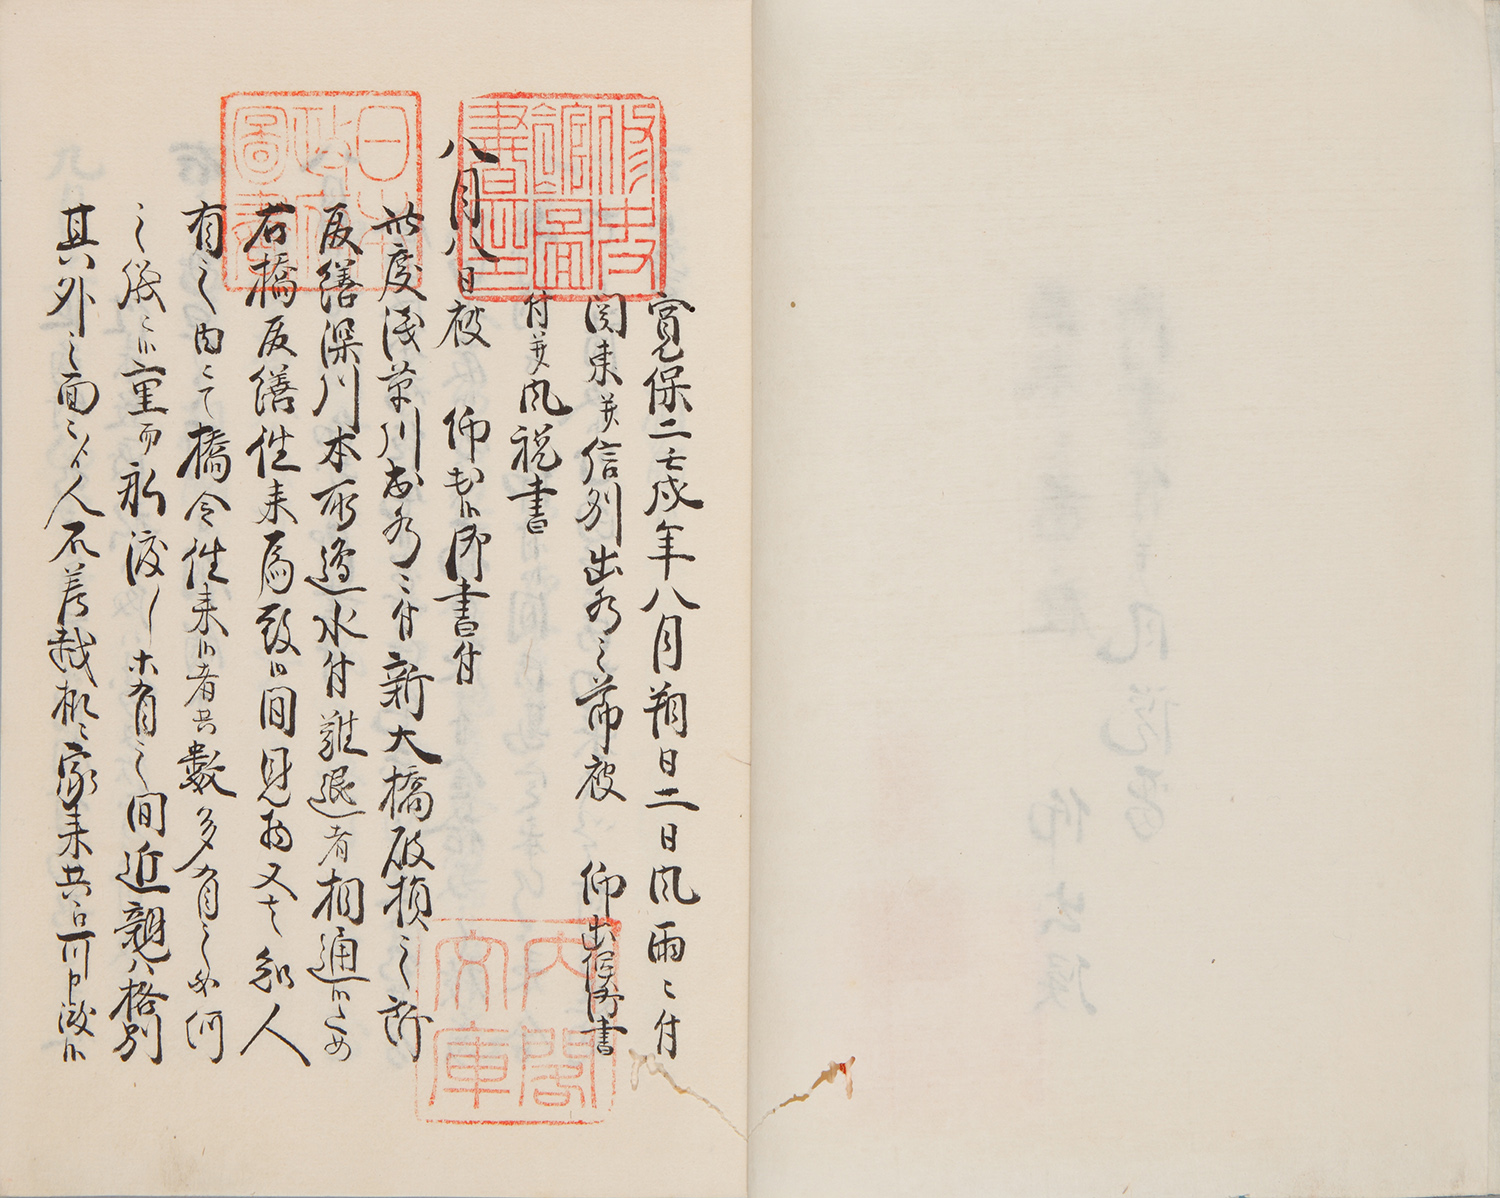 寛保二壬戌年八月朔日二日風雨ニ付
関東并信州出水之節被 仰出候御書
付并風説書
八月八日被 仰出候御書付
此度浅草川出水ニ付新大橋破損之所
取繕深川本所邊水付難退者相通候ため
右橋取繕往来為致候間見物又は知人
有之内ニて橋令往来候者共数多有之由何
之儀ニ候重而永渡し等有之間近親ハ格別
其外之面々ゟ人不差越家来共台所
修史館圖書印
日本政府圖書
内閣文庫